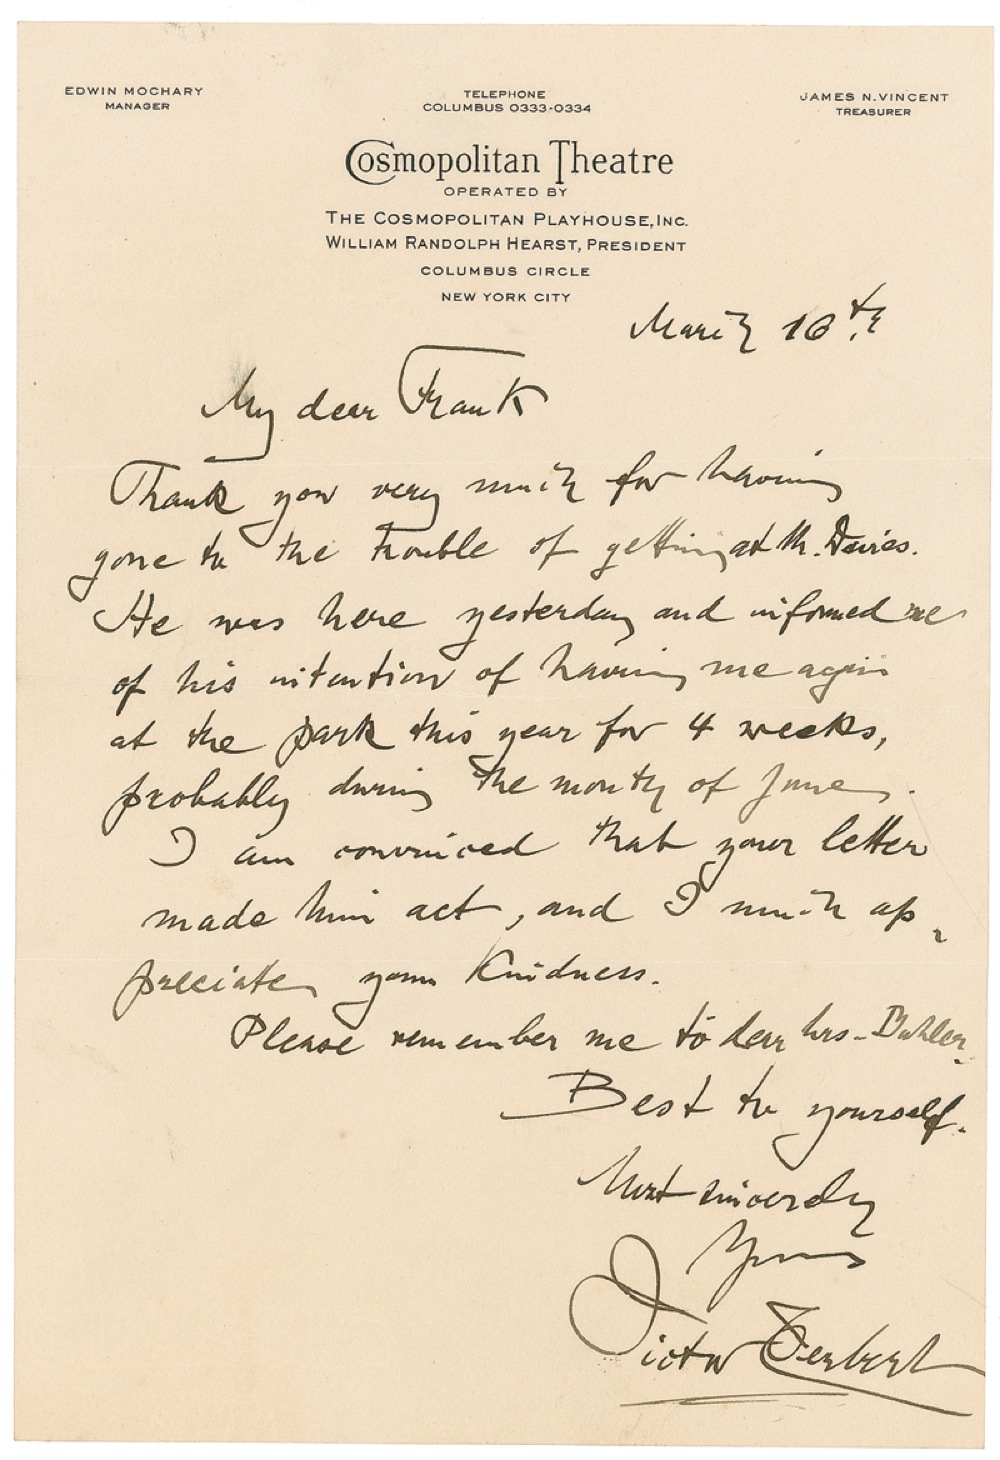 EDWIN MOCHARY
MANAGER
TELEPHONE
COLUMBUS 0333-0334
JAMES N. VINCENT
TREASURER
Cosmopolitan Theatre
OPERATED BY
THE COSMOPOLITAN PLAYHOUSE, INC.
WILLIAM RANDOLPH HEARST, PRESIDENT
COLUMBUS CIRCLE
NEW YORK CITY
March 16th
My dear Frank
Thank you very much for having
gone to the trouble of getting at Mr. Davies.
He was here yesterday and informed me
of his intention of having me again
at the park this year for 4 weeks,
probably during the month of June.
I am convinced that your letter
made him act, and I much ap-
preciate your kindness.
Please remember me to dear Mrs.
Best to yourself.
Most sincerely
Yours
Victor Herbert